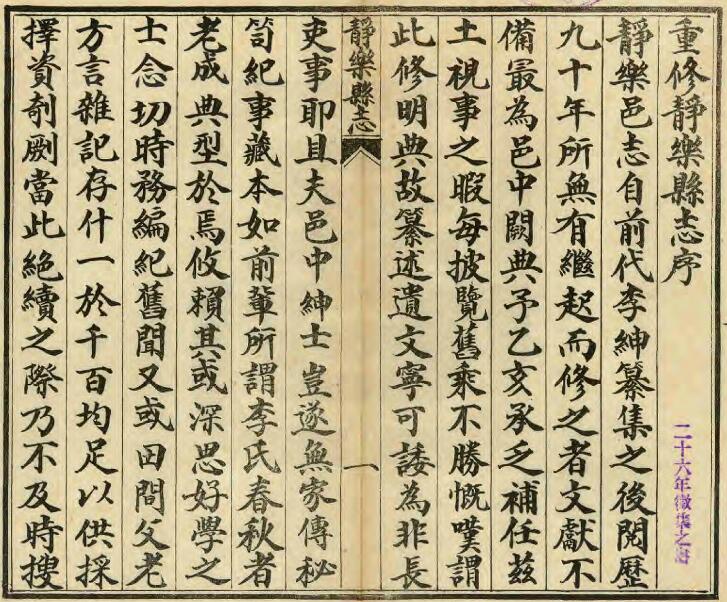 重修靜樂縣志序
靜樂邑志自前代李紳纂集之後閱歷
九十年所無有繼起而修之者文獻不
備最為邑中闕典予乙亥承乏補任茲
土視事之暇每披覽舊乘不勝慨嘆謂
此修明典故纂述遺文寧可諉為非長
靜樂縣志
一
吏事耶且夫邑中紳士豈遂無家傳秘
笥紀事藏本如前輩所謂李氏春秋者
老成典型於焉攸賴其或深思好學之
士念切時務編紀舊聞又或田間父老
方言雜記存什一於千百均足以供採
擇資剞劂當此絕續之際乃不及時搜
二十六年徵集之